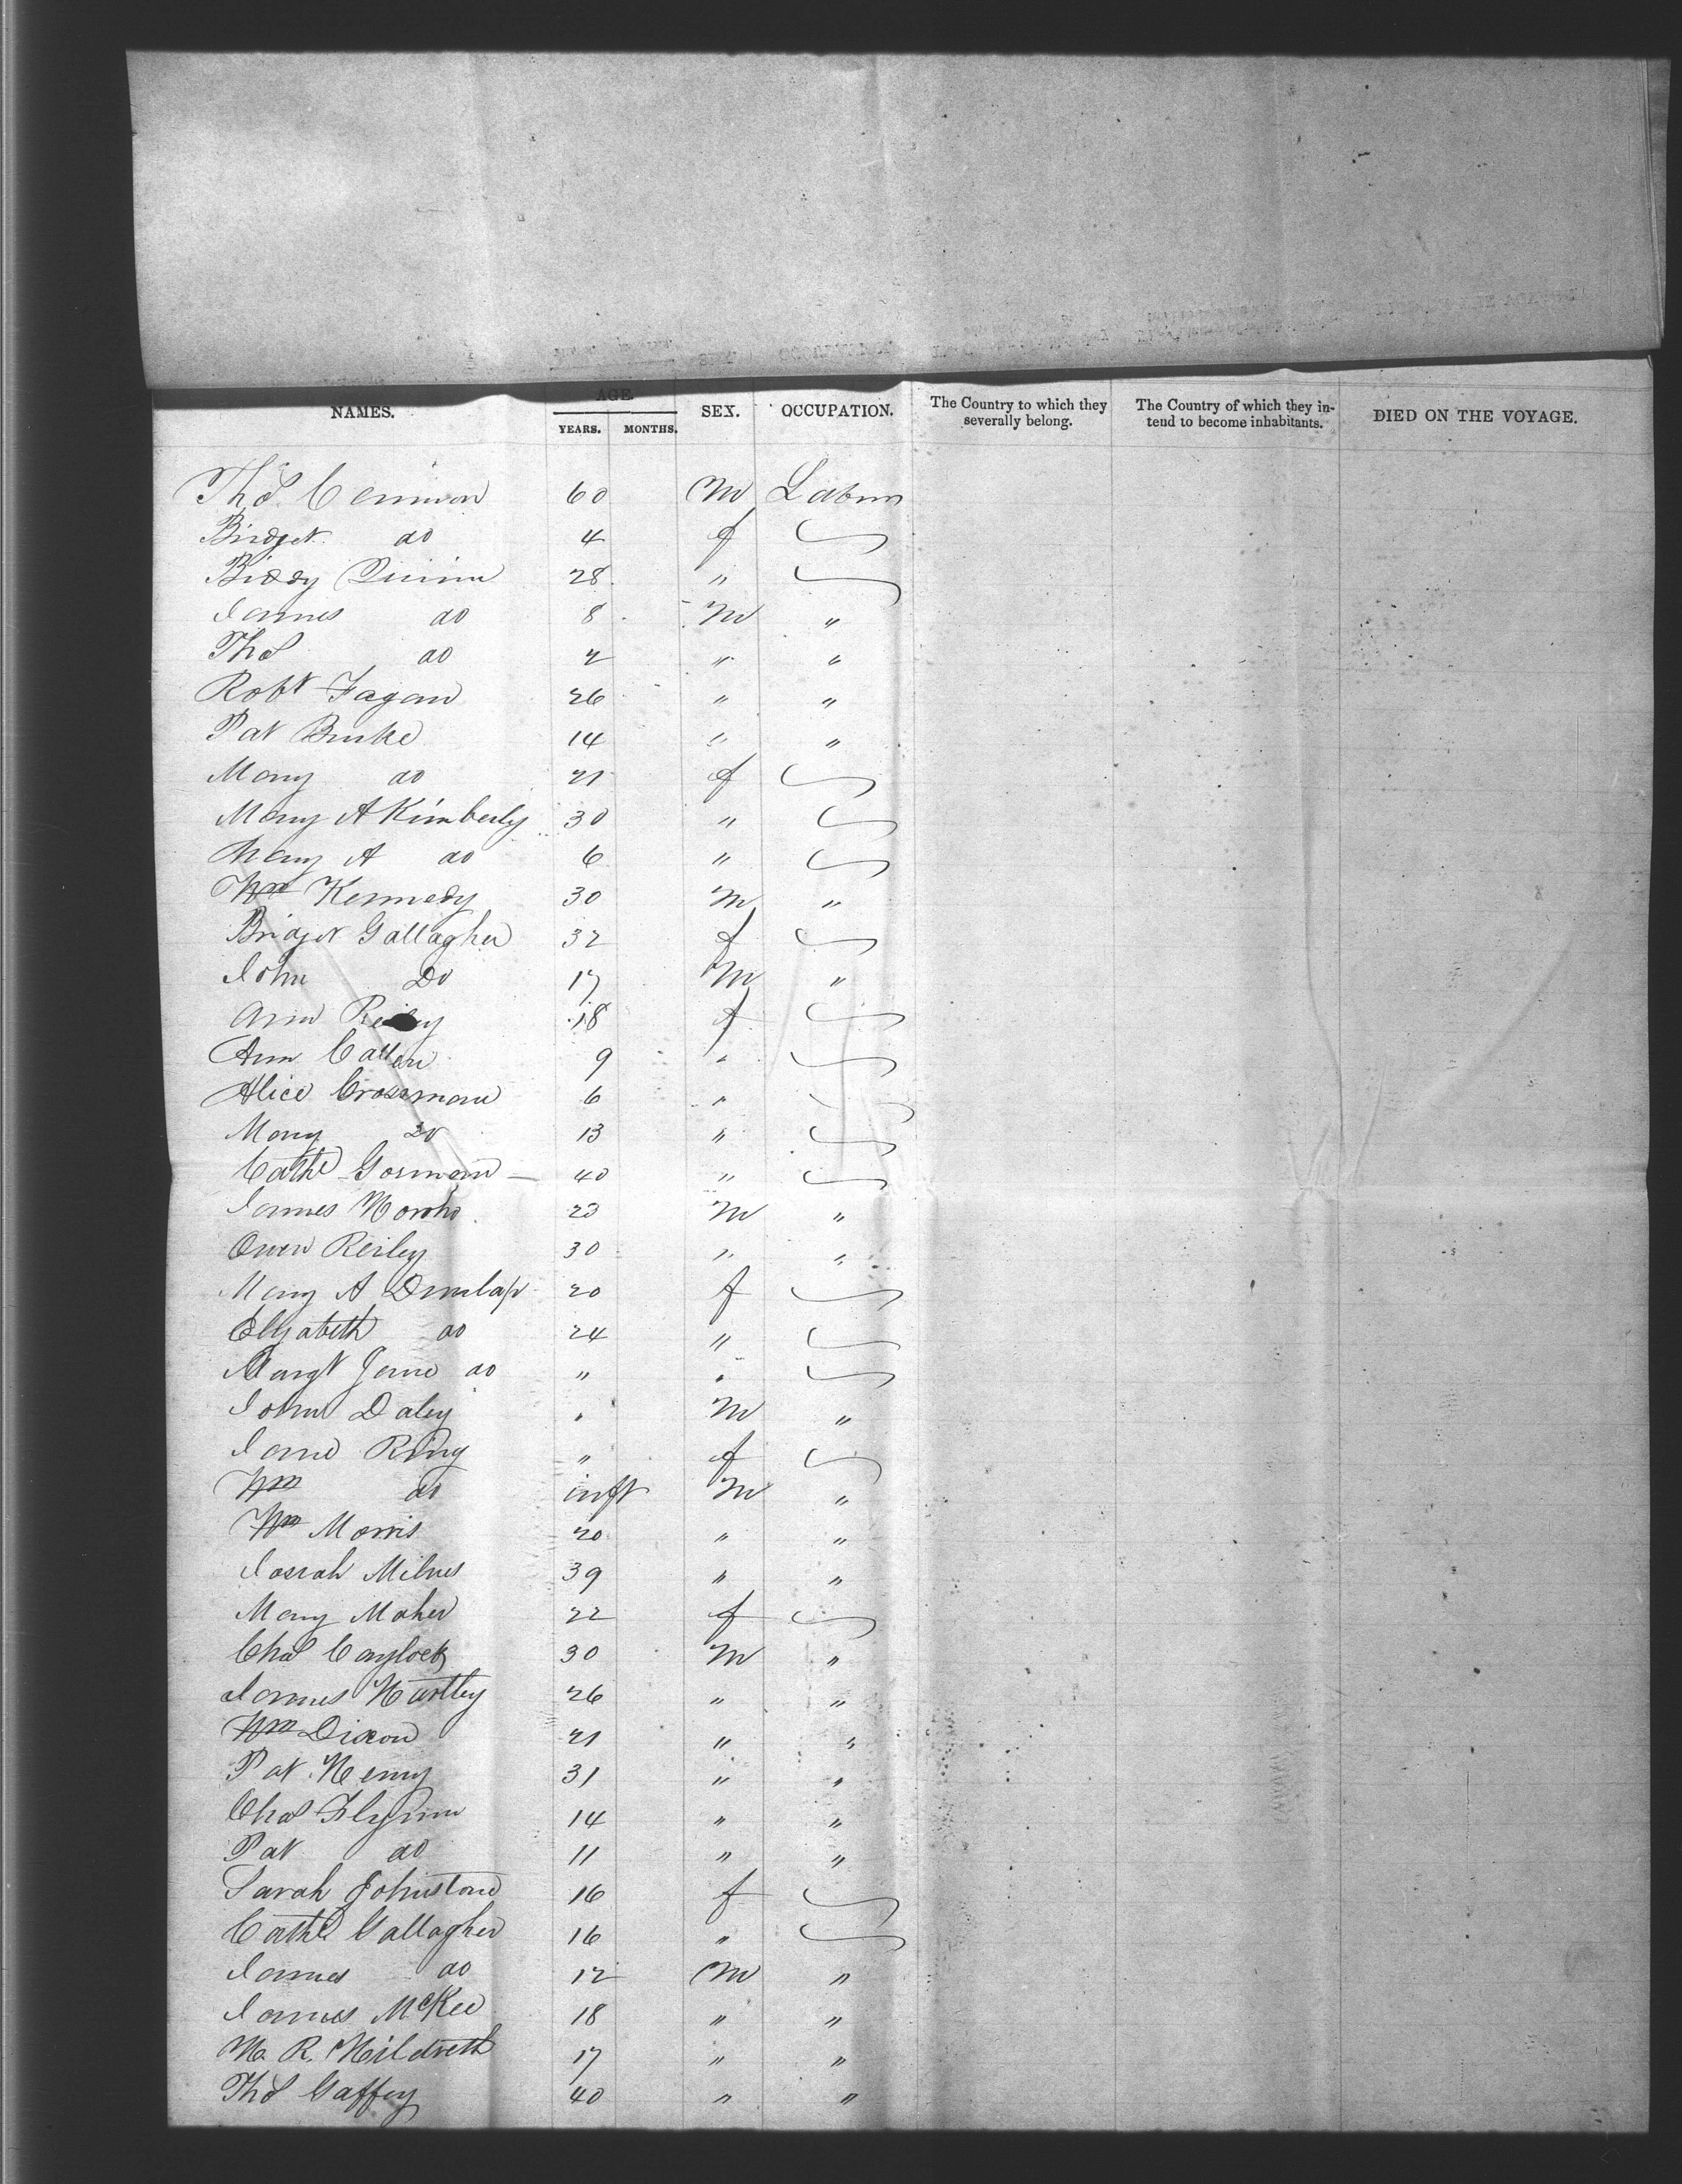 NAMES. AGE. YEARS. MONTHS. SEX. OCCUPATION. The Country to which they severally belong. The Country of which they intend to become inhabitants. DIED ON THE VOYAGE.
Thos. 60 M Labor
Bridget do 4 f
Biddy Quinn 28 "
James do 8 M "
Thos do 2 " "
Robt Fagan 26 " "
Pat Burke 14 " "
Mary do 21 f
Mary A Kimberly 30 "
Mary A do 6 "
Wm Kennedy 30 M "
Bridget Gallagher 32 f
John Do 17 M "
Ann Reiley 18 f
Ann Callen 9 "
Alice Crossman 6 "
Mary do 13 "
Cath Gorman 40 "
James 23 M "
Owen Reiley 30 " "
Mary A Dunlap 20 f
Elizabeth do 24 "
Margt Jane do " "
John Daley " M "
Jane Ring " f
Wm do inft M "
Wm Morris 20 " "
Josiah Milnes 39 " "
Mary Maher 22 f
Chas 30 M "
James Hartley 26 " "
Wm Dixon 21 " "
Pat Henry 31 " "
Chas Flynn 14 " "
Pat do 11 " "
Sarah Johnstone 16 f
Cath Gallagher 16 "
James do 12 M "
James McKee 18 " "
R. Hildreth 17 " "
Thos Gaffey 40 " "